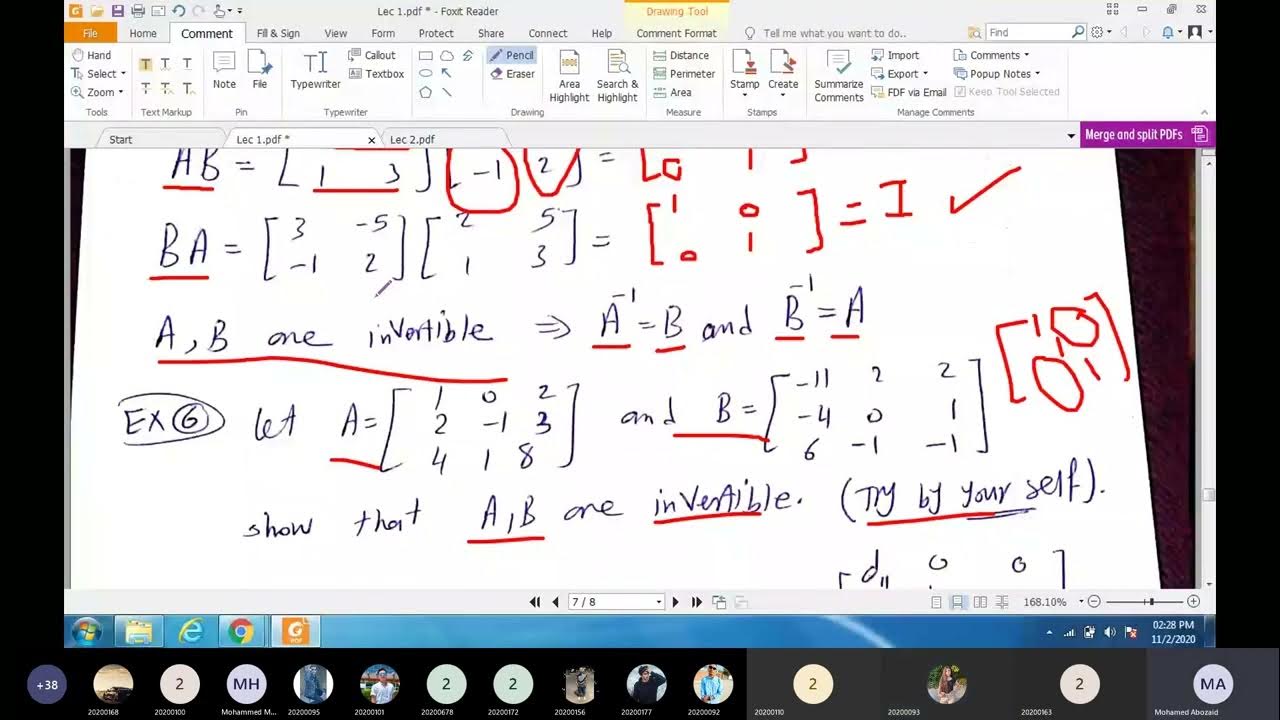 Lec 1.pdf * - Foxit Reader
Drawing Tool
File Home Comment Fill & Sign View Form Protect Share Connect Help Comment Format Tell me what you want to do.. Find
Hand Select Zoom
Tools
T T T
T T T
Text Markup
Note File
Pin
Typewriter Callout Textbox
Typewriter
Pencil Eraser Area Highlight Search & Highlight
Drawing
Distance Perimeter Area
Measure
Stamp Create
Stamps
Summarize Comments Import Export FDF via Email Comments Popup Notes Keep Tool Selected
Manage Comments
Start Lec 1.pdf * Lec 2.pdf Merge and split PDFs
AB = [ 1 3 ] [ -1 2 ] = [ 0 1 ]
BA = [ 3 -5 ] [ 2 5 ] = [ 1 0 ] = I ✓
[ -1 2 ] [ 1 3 ] [ 0 1 ]
A, B are invertible ⇒ A⁻¹ = B and B⁻¹ = A
[ 1 0
1
0 1 ]
EX ⑥ let A = [ 1 0 2 ] and B = [ -11 2 2 ]
[ 2 -1 3 ] [ -4 0 1 ]
[ 4 1 8 ] [ 6 -1 -1 ]
show that A, B are invertible. (Try by your self).
[ d₁₁ 0 0 ]
7 / 8 168.10%
02:28 PM
11/2/2020
+38 2 MH 2 2 2 2 MA
20200168 20200100 Mohammed M... 20200095 20200101 20200678 20200172 20200156 20200177 20200092 20200110 20200093 20200163 Mohamed Abozaid